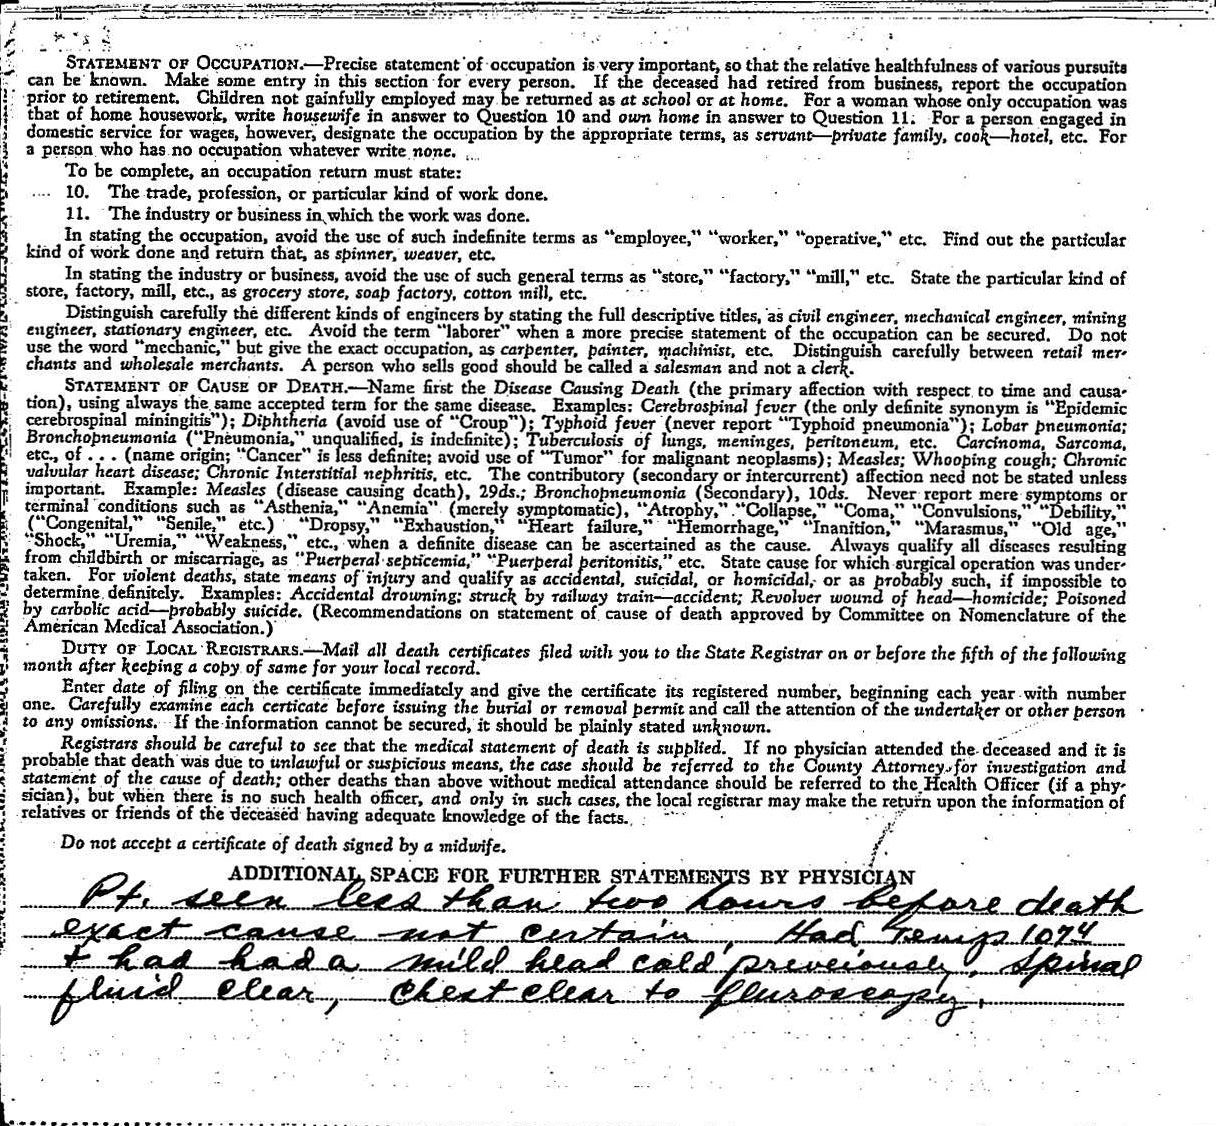 STATEMENT OF OCCUPATION.—Precise statement of occupation is very important, so that the relative healthfulness of various pursuits
can be known. Make some entry in this section for every person. If the deceased had retired from business, report the occupation
prior to retirement. Children not gainfully employed may be returned as at school or at home. For a woman whose only occupation was
that of home housework, write housewife in answer to Question 10 and own home in answer to Question 11. For a person engaged in
domestic service for wages, however, designate the occupation by the appropriate terms, as servant—private family, cook—hotel, etc. For
a person who has no occupation whatever write none.
To be complete, an occupation return must state:
10. The trade, profession, or particular kind of work done.
11. The industry or business in which the work was done.
In stating the occupation, avoid the use of such indefinite terms as “employee,” “worker,” “operative,” etc. Find out the particular
kind of work done and return that, as spinner, weaver, etc.
In stating the industry or business, avoid the use of such general terms as “store,” “factory,” “mill,” etc. State the particular kind of
store, factory, mill, etc., as grocery store, soap factory, cotton mill, etc.
Distinguish carefully the different kinds of engineers by stating the full descriptive titles, as civil engineer, mechanical engineer, mining
engineer, stationary engineer, etc. Avoid the term “laborer” when a more precise statement of the occupation can be secured. Do not
use the word “mechanic,” but give the exact occupation, as carpenter, painter, machinist, etc. Distinguish carefully between retail mer-
chants and wholesale merchants. A person who sells good should be called a salesman and not a clerk.
STATEMENT OF CAUSE OF DEATH.—Name first the Disease Causing Death (the primary affection with respect to time and causa-
tion), using always the same accepted term for the same disease. Examples: Cerebrospinal fever (the only definite synonym is “Epidemic
cerebrospinal miningitis”); Diphtheria (avoid use of “Croup”); Typhoid fever (never report “Typhoid pneumonia”); Lobar pneumonia;
Bronchopneumonia (“Pneumonia,” unqualified, is indefinite); Tuberculosis of lungs, meninges, peritoneum, etc. Carcinoma, Sarcoma,
etc., of . . . (name origin; “Cancer” is less definite; avoid use of “Tumor” for malignant neoplasms); Measles; Whooping cough; Chronic
valvular heart disease; Chronic Interstitial nephritis, etc. The contributory (secondary or intercurrent) affection need not be stated unless
important. Example: Measles (disease causing death), 29ds.; Bronchopneumonia (Secondary), 10ds. Never report mere symptoms or
terminal conditions such as “Asthenia,” “Anemia” (merely symptomatic), “Atrophy,” “Collapse,” “Coma,” “Convulsions,” “Debility,”
(“Congenital,” “Senile,” etc.) “Dropsy,” “Exhaustion,” “Heart failure,” “Hemorrhage,” “Inanition,” “Marasmus,” “Old age,”
“Shock,” “Uremia,” “Weakness,” etc., when a definite disease can be ascertained as the cause. Always qualify all diseases resulting
from childbirth or miscarriage, as “Puerperal septicemia,” “Puerperal peritonitis,” etc. State cause for which surgical operation was under-
taken. For violent deaths, state means of injury and qualify as accidental, suicidal, or homicidal, or as probably such, if impossible to
determine definitely. Examples: Accidental drowning; struck by railway train—accident; Revolver wound of head—homicide; Poisoned
by carbolic acid—probably suicide. (Recommendations on statement of cause of death approved by Committee on Nomenclature of the
American Medical Association.)
DUTY OF LOCAL REGISTRARS.—Mail all death certificates filed with you to the State Registrar on or before the fifth of the following
month after keeping a copy of same for your local record.
Enter date of filing on the certificate immediately and give the certificate its registered number, beginning each year with number
one. Carefully examine each certicate before issuing the burial or removal permit and call the attention of the undertaker or other person
to any omissions. If the information cannot be secured, it should be plainly stated unknown.
Registrars should be careful to see that the medical statement of death is supplied. If no physician attended the deceased and it is
probable that death was due to unlawful or suspicious means, the case should be referred to the County Attorney for investigation and
statement of the cause of death; other deaths than above without medical attendance should be referred to the Health Officer (if a phy-
sician), but when there is no such health officer, and only in such cases, the local registrar may make the return upon the information of
relatives or friends of the deceased having adequate knowledge of the facts.
Do not accept a certificate of death signed by a midwife.
ADDITIONAL SPACE FOR FURTHER STATEMENTS BY PHYSICIAN
Pt. seen less than two hours before death
exact cause not certain, Had Temp 1074
+ had had a mild head cold preveiously, spinal
fluid clear, chest clear to fluroscopy.